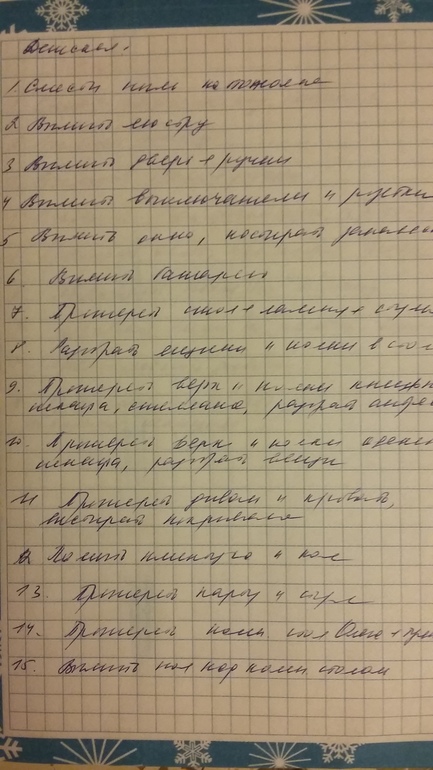 Детская.
1. Смести пыль на потолке
2 Вымыть люстру
3 Вымыть двери + ручки
4 Вымыть выключатели и розетки
5 Вымыть окно, постирать занавес
6. Вымыть батарею
7. Протереть стол + лампу + стул
8. Разобрать ящики и полки в стол
9. Протереть верх и полки книжн
шкафа, стеллажа, разобрать
10. Протереть верх и полки
шкафа, разобрать вещи
11 Протереть диван и кровать,
постирать покрывала
12 Помыть плинтуса и пол
13. Протереть парту и стул
14. Протереть комп стол
15. Вымыть пол под комп столом